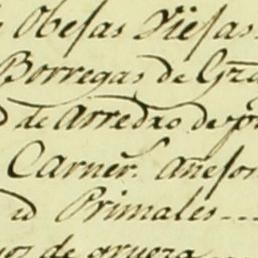 Obejas Viejas
Borregas de Gra
id de Arredro de pr
Carner. añejon
id Primales
de gruera